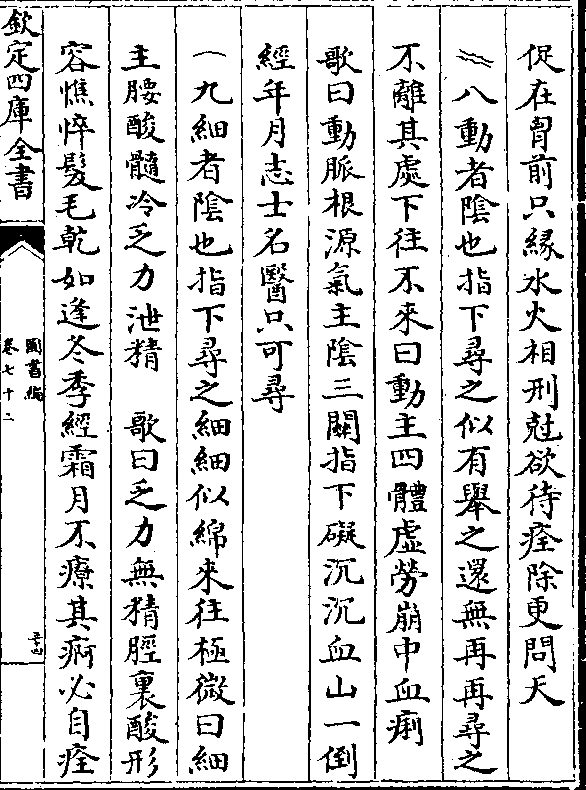 促在胷前只縁水火相刑尅欲待痊除更問天
八動者陰也指下尋之似有舉之還無再再尋之
不離其處下往不來曰動主四體虛勞崩中血痢
歌曰動脈根源氣主陰三關指下礙沉沉血山一倒
經年月志士名醫只可尋
一九細者陰也指下尋之細細似綿來往極微曰細
主腰酸髓冷乏力泄精　歌曰乏力無精脛裏酸形
容憔悴髮毛乾如逢冬季經霜月不療其痾必自痊
欽定四庫全書
圖書編
卷七十二
三十四